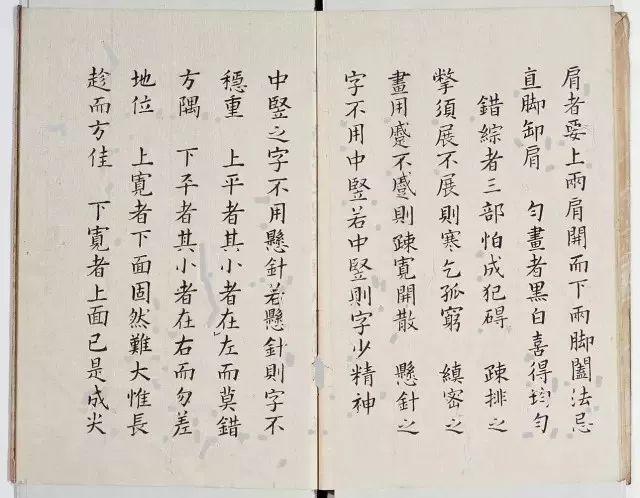 肩者要上兩肩開而下兩脚闔法忌
直脚卸肩　匀畫者黑白喜得均匀
錯綜者三部怕成犯碍　踈排之
撆須展不展則寒乞孤窮　縝密之
畫用蹙不蹙則踈寬開散　懸針之
字不用中竪若中竪則字少精神
中竪之字不用懸針若懸針則字不
穩重　上平者其小者在左而莫錯
方隅　下平者其小者在右而勿差
地位　上寬者下面固然難大惟長
趁而方佳　下寬者上面已是成尖